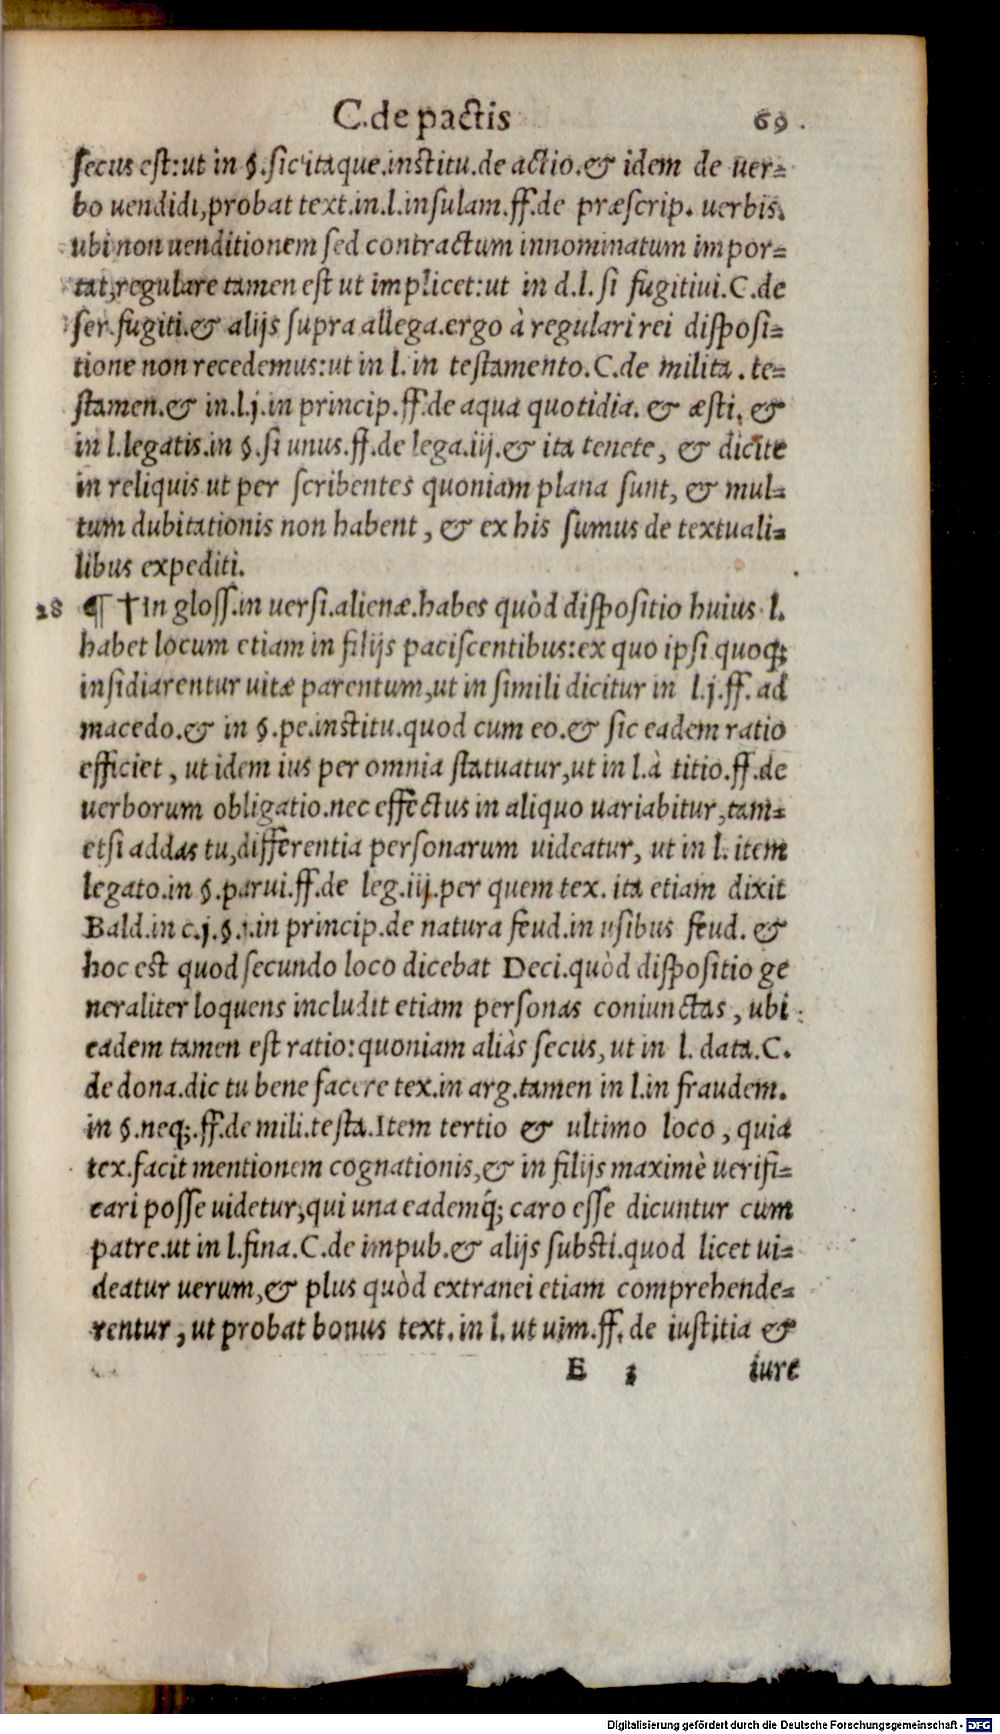 C.de pactis 69.
secus est: ut in §.sic itaque.institu.de actio.& idem de uer-
bo uendidi, probat text.in.l.insulam.ff.de præscrip. uerbis.
ubi non uenditionem sed contractum innominatum impor-
tat, regulare tamen est ut implicet: ut in d.l. si fugitiui.C.de
ser.fugiti.& alijs supra allega.ergo à regulari rei disposi-
tione non recedemus: ut in l. in testamento.C.de milita. te-
stamen.& in.l.j.in princip.ff.de aqua quotidia. & æsti. &
in l.legatis.in §.si unus.ff.de lega.iij.& ita tenete, & dicite
in reliquis ut per scribentes quoniam plana sunt, & mul-
tum dubitationis non habent, & ex his sumus de textuali-
libus expediti.
28 ¶ †In gloss.in uersi.alienæ.habes quòd dispositio huius l.
habet locum etiam in filijs paciscentibus: ex quo ipsi quoq;
insidiarentur uitæ parentum, ut in simili dicitur in l.j.ff. ad
macedo.& in §.pe.institu.quod cum eo.& sic eadem ratio
efficiet, ut idem ius per omnia statuatur, ut in l.à titio.ff.de
uerborum obligatio.nec effectus in aliquo uariabitur, tam-
etsi addas tu, differentia personarum uideatur, ut in l. item
legato.in §.parui.ff.de leg.iij.per quem tex. ita etiam dixit
Bald.in c.j.§.j.in princip.de natura feud.in usibus feud. &
hoc est quod secundo loco dicebat Deci.quòd dispositio ge
neraliter loquens includit etiam personas coniunctas, ubi
eadem tamen est ratio: quoniam aliàs secus, ut in l. data.C.
de dona.dic tu bene facere tex.in arg.tamen in l.in fraudem.
in §.neq;.ff.de mili.testa.Item tertio & ultimo loco, quia
tex.facit mentionem cognationis, & in filijs maximè uerifi-
cari posse uidetur, qui una eademq́; caro esse dicuntur cum
patre.ut in l.fina.C.de impub.& alijs substi.quod licet ui-
deatur uerum, & plus quòd extranei etiam comprehende-
rentur, ut probat bonus text. in l. ut uim.ff. de iustitia &
E 3 iure
Digitalisierung gefördert durch die Deutsche Forschungsgemeinschaft - DFG